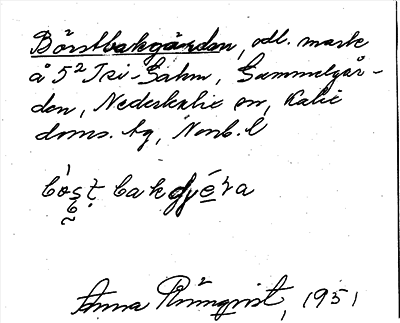 Börstbakgården, odl. mark
å 5² Isi-Sahm, Gammelgår-
den, Nederkalix sn, Kalix
doms. tg, Norrb. l
Anna Rönnqvist, 1951